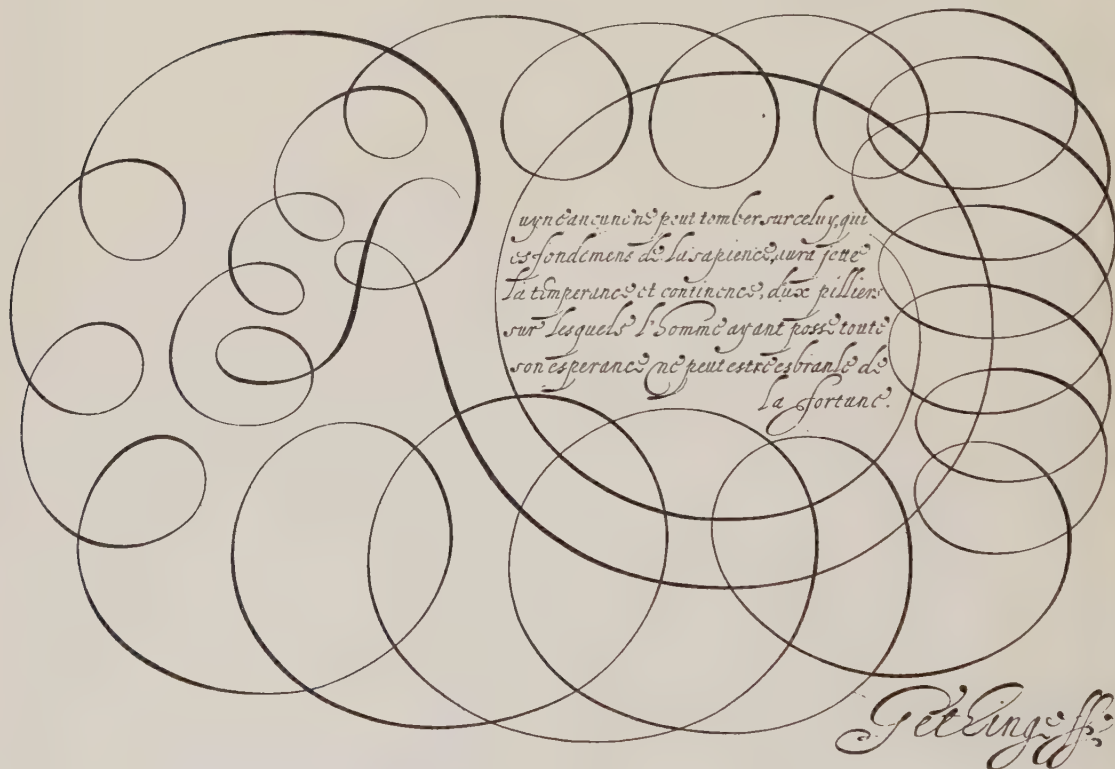 uyne aucune ne peut tomber sur celuy, qui
es fondemens de la sapience, aura jette
la temperance et continence, dux pilliers
sur lesquels l'homme ayant posse toute
son esperance ne peut estre esbranle de
la fortune.